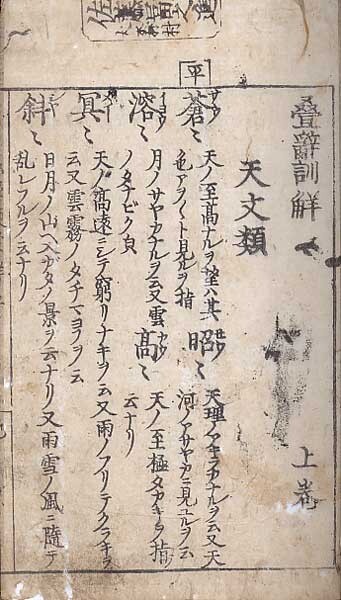 疊辭訓觧 上巻
天文類
平
蒼〻 天ノ至高ナルヲ望ハ其
色アヲ〱ト見ルヲ指
昭〻 天理ノアキラカナルヲ云又天
河ノアサヤカニ見ユルヲ云
溶〻 月ノサヤカナルヲ云又雲
ノタナビク皃
高〻 天ノ至極タカキヲ指
云ナリ
冥〻 天ノ高遠ニシテ窮リナキヲ云又雨ノフリテクラキヲ
云又雲霧ノタチマヨフヲ云
斜〻 日月ノ山ヘ入カタノ景ヲ云ナリ又雨雪ノ風ニ隨テ
乱レフルヲ云ナリ